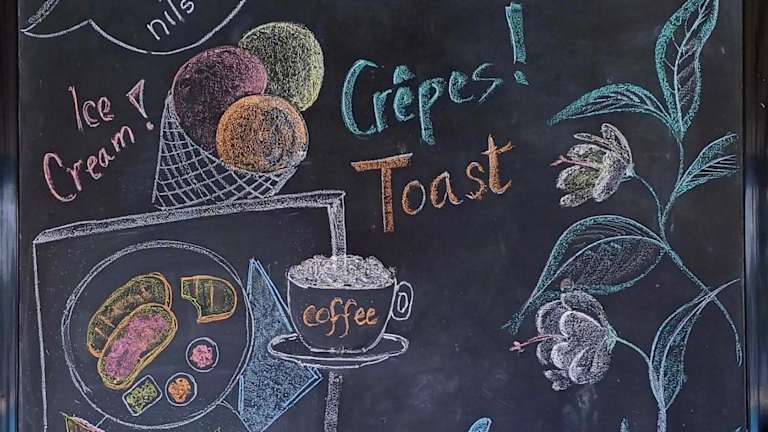 nils
Ice
Cream!
Crêpes!
Toast
coffee